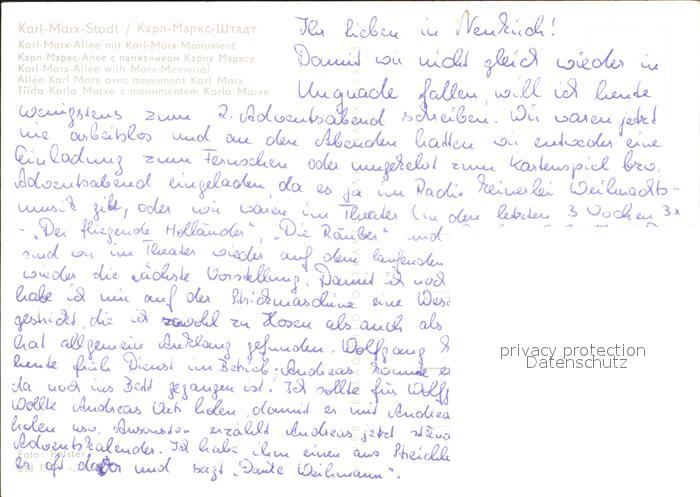 Karl-Marx-Stadt / Карл-Маркс-Штадт
Karl-Marx-Allee mit Karl-Marx-Monument
Карл-Маркс-Алее с памятником Карлу Марксу
Karl-Marx-Allee with Marx-Memorial
Allée Karl Marx avec monument Karl Marx
Třída Karla Marxe s monumentem Karla Marxe
Ihr lieben in Neukirch!
Damit wir nicht gleich wieder in
Ungnade fallen, will ich heute
wenigstens zum 2. Adventsabend schreiben. Wir waren jetzt
nie arbeitslos und an den Abenden hatten wir entweder eine
Einladung zum Fernsehen oder umgekehrt zum Kartenspiel bzw.
Adventsabend eingeladen, da es ja im Radio keinerlei Weihnachts-
musik gibt, oder wir waren im Theater (in den letzten 3 Wochen 3x
- „Der fliegende Holländer", „Die Räuber" und
sind wir im Theater wieder auf dem laufenden
wieder die nächste Vorstellung. Damit ich noch
habe ich mir auf der Strickmaschine eine Wes
gestrickt, die ich sowohl zu Hosen als auch als
hat allgemein Anklang gefunden. Wolfgang
heute früh Dienst im Betrieb. Andreas konnte
da noch ins Bett gegangen ist. Ich sollte für Wolfg
wollte Andreas Vati holen, damit er mit Andrea
holen usw. Ansonsten erzählt Andreas jetzt stän
Adventskalender. Ich habe ihm einen aus Streichh
er oft davor und sagt „Dante Weihmann".
Foto:
privacy protection
Datenschutz